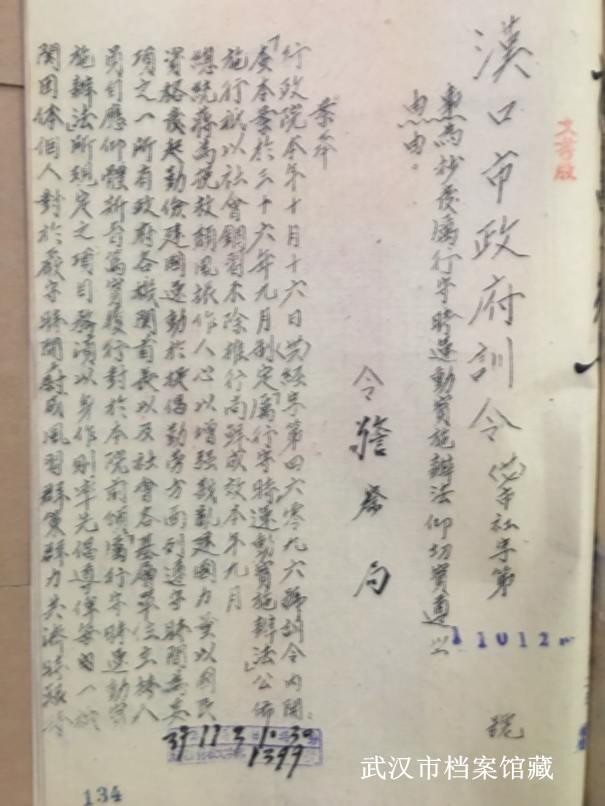 漢口市政府訓令 市社字第 11012 號
事為抄發厲行守時運動實施辦法仰切實遵照
由。
令 警察局
案奉
行政院本年十月十六日 經字第四六零九六號訓令內開:
「查本案於三十六年九月制定「厲行守時運動實施辦法」公佈
施行祇以社會錮習未除推行尚鮮成效本年九月
總統蔣為挽救頹風振作人心以增強戡亂建國力量以國民
資格發起勤儉建國運動於提倡勤勞方面列遵守時間為其
項之一所有政府各機關首長以及社會各基層單位主持人
員自應仰體斯旨篤實履行對於本院前頒「厲行守時運動實
施辦法」所規定之項目務須以身作則率先倡導俾每一機
關團体個人對於嚴守時間蔚成風習群策群力共濟時艱
文書股
37 11 2 10 30
1399
134
武汉市档案馆藏